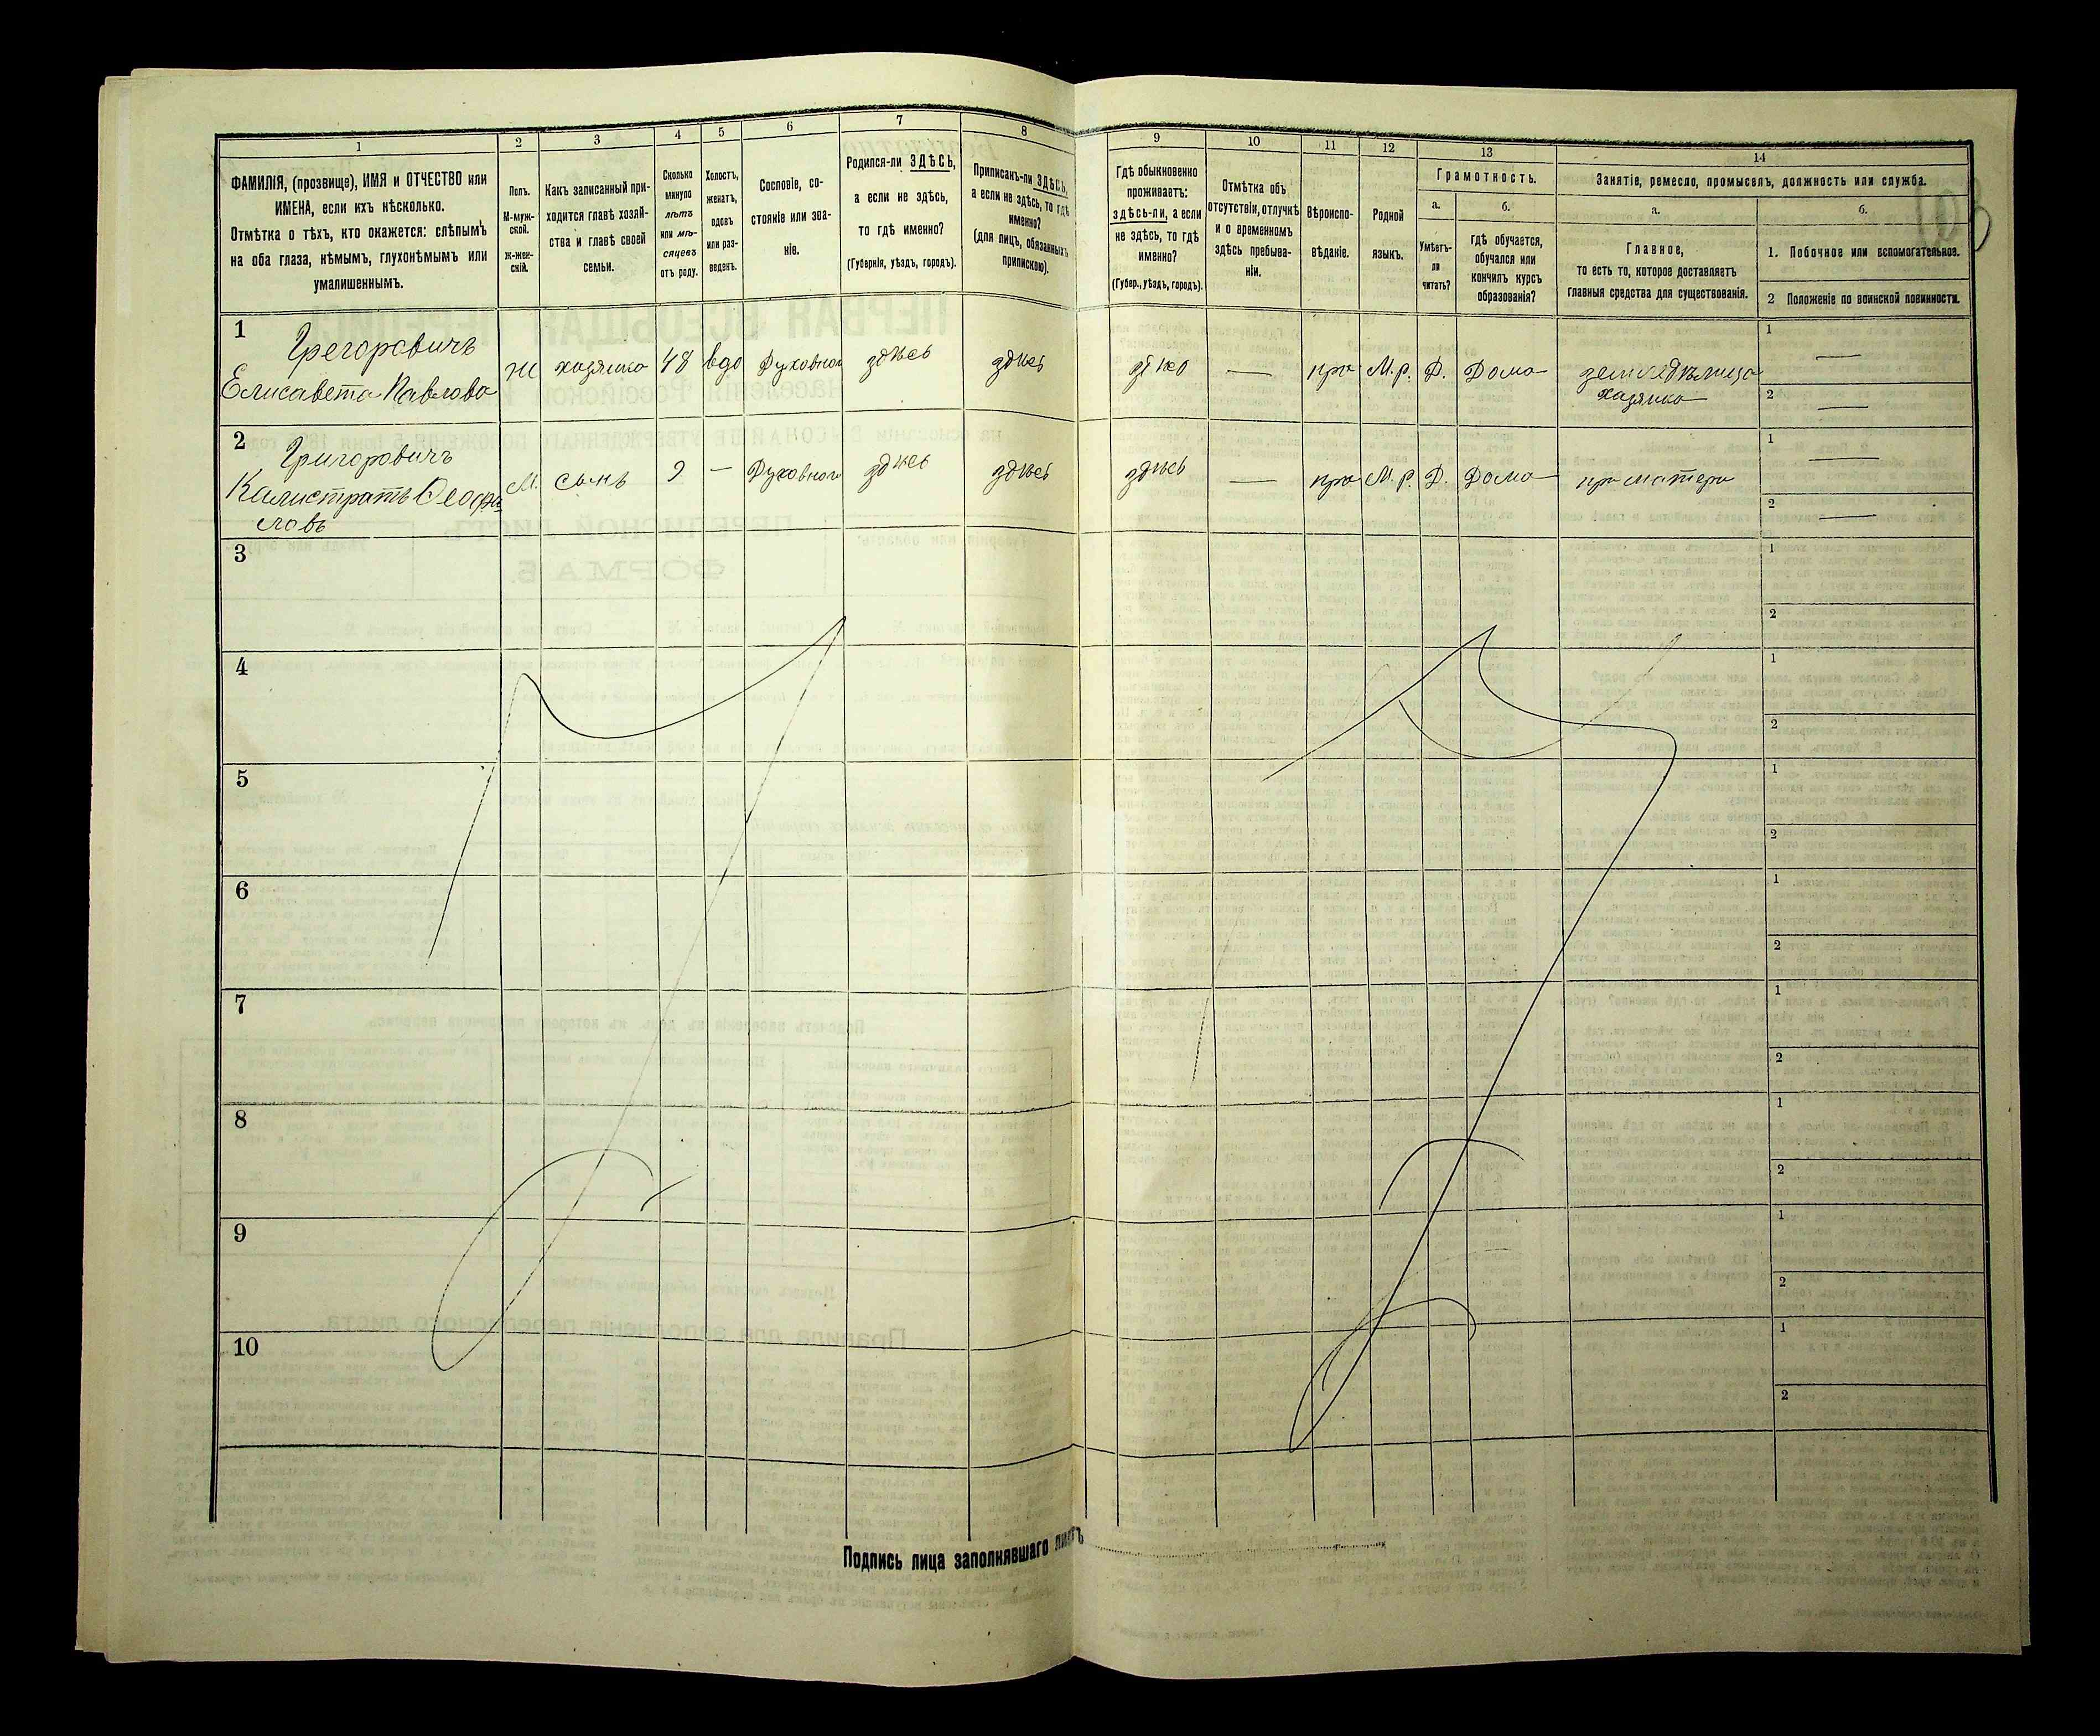 1 2 3 4 5 6 7 8 9 10 11 12 13 14
ФАМИЛІЯ, (прозвище), ИМЯ и ОТЧЕСТВО или
ИМЕНА, если ихъ нѣсколько.
Отмѣтка о тѣхъ, кто окажется: слѣпымъ
на оба глаза, нѣмымъ, глухонѣмымъ или
умалишеннымъ.
Полъ.
М-муж-
ской.
Ж-жен-
скій.
Какъ записанный при-
ходится главѣ хозяй-
ства и главѣ своей
семьи.
Сколько
минуло
лѣтъ
или мѣ-
сяцевъ
отъ роду.
Холостъ,
женатъ,
вдовъ
или раз-
веденъ.
Сословіе, со-
стояніе или зва-
ніе.
Родился-ли ЗДѢСЬ,
а если не здѣсь,
то гдѣ именно?
(Губернія, уѣздъ, городъ).
Приписанъ-ли ЗДѢСЬ,
а если не здѣсь, то гдѣ
именно?
(для лицъ, обязанныхъ
припискою).
Гдѣ обыкновенно
проживаетъ:
здѣсь-ли, а если
не здѣсь, то гдѣ
именно?
(Губер., уѣздъ, городъ).
Отмѣтка объ
отсутствіи, отлучкѣ
и о временномъ
здѣсь пребыва-
ніи.
Вѣроиспо-
вѣданіе.
Родной
языкъ.
Грамотность.
а.
Умѣетъ-
ли
читать?
б.
Гдѣ обучается,
обучался или
кончилъ курсъ
образованія?
Занятіе, ремесло, промыселъ, должность или служба.
а.
Главное,
то есть то, которое доставляетъ
главныя средства для существованія.
б.
1. Побочное или вспомогательное.
2 Положеніе по воинской повинности.
1
Грегоровичъ
Елисавета Павлова
Ж хозяйка 48 вдо Духовнаго здѣсь здѣсь здѣсь — пра М.р. Д. Дома земледѣлица
хазяйка
1 —
2 —
2
Григоровичъ
Калистратъ Феофи-
ловъ
М. сынъ 9 — Духовнаго здѣсь здѣсь здѣсь — пра М.р. Д. Дома при матери
1 —
2 —
3
1
2
4
1
2
5
1
2
6
1
2
7
1
2
8
1
2
9
1
2
10
1
2
Подпись лица заполнявшаго листъ